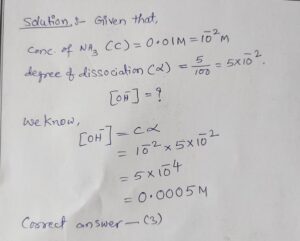 Solution :- Given that,
conc. of NH₃ (C) = 0.01M = 10⁻² M
degree of dissociation (α) = 5/100 = 5×10⁻².
[OH⁻] = ?
We know,
[OH⁻] = Cα
= 10⁻² × 5×10⁻²
= 5×10⁻⁴
= 0.0005 M
Correct answer — (3)